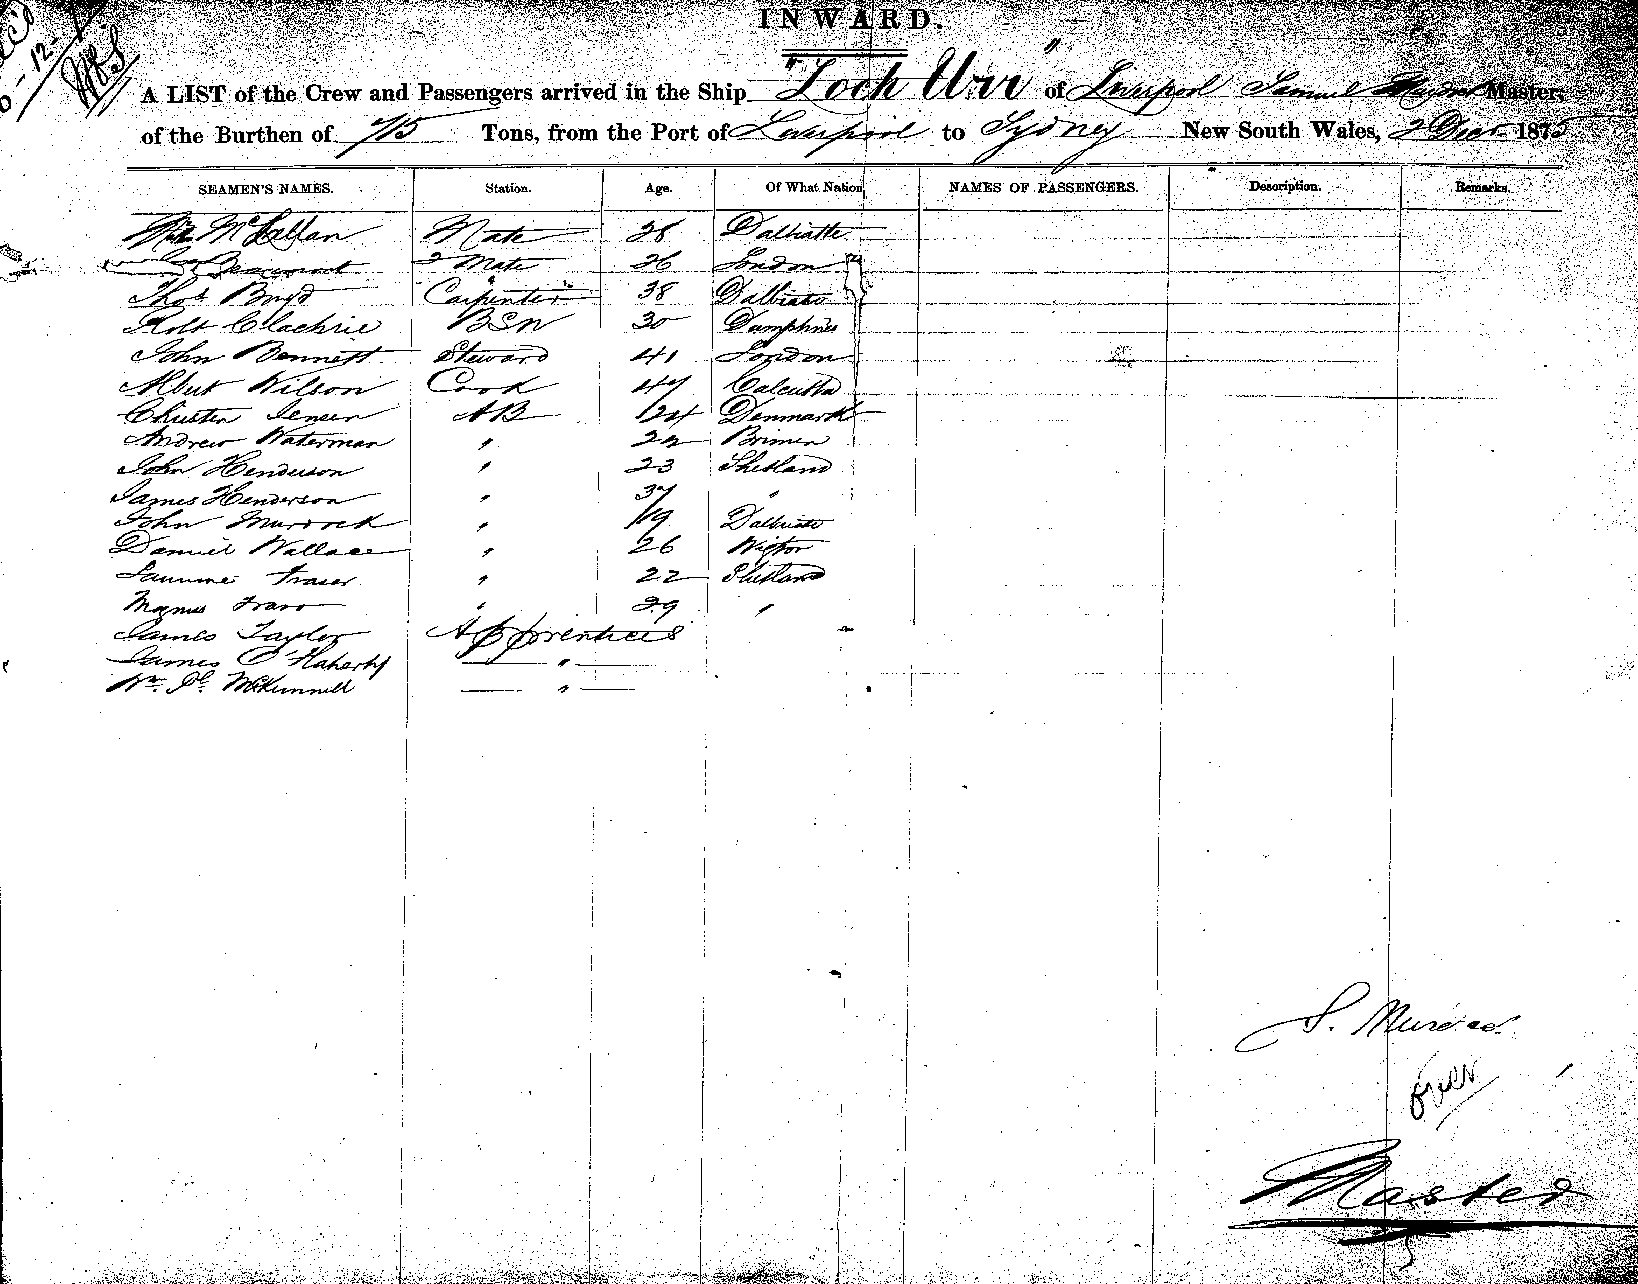 INWARD.
A LIST of the Crew and Passengers arrived in the Ship "Loch Urr" of Liverpool Samuel Master,
of the Burthen of 715 Tons, from the Port of Liverpool to Sydney New South Wales, 2 Decr 1875
SEAMEN'S NAMES. Station. Age. Of What Nation NAMES OF PASSENGERS. Description. Remarks.
Wm McLellan Mate 28 Dalbiatte
Beaumont 2 Mate 26 London
Thos Boyd Carpenter 38 Dalbiato
Robt Clachrie BSN 30 Dumphries
John Bennett Steward 41 London
Albert Wilson Cook 47 Calcutta
Christen Jensen AB 24 Denmark
Andrew Waterman " 22 Brimen
John Henderson " 23 Shetland
James Henderson " 37 "
John Murdock " 19 Dalbiato
Daniel Wallace " 26
Fraser " 22 Shetland
Magnus " 29 "
James Taylor Apprentices
James O'Flaherty "
Wm Jno. McKinnell "
S.
over
Master